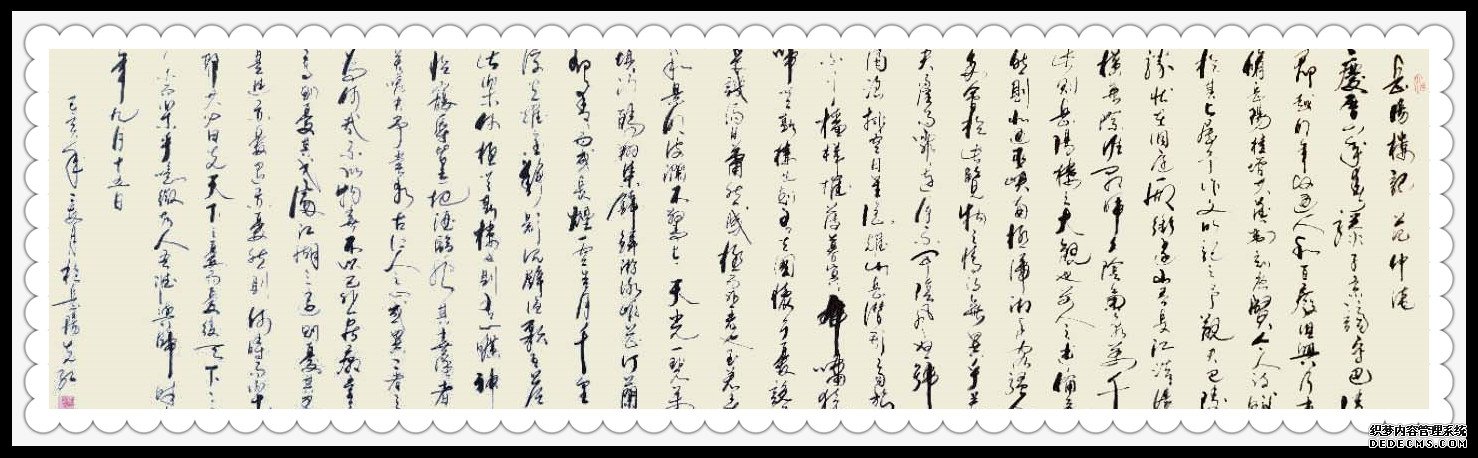 岳陽樓記 范仲淹
慶曆四年春滕子京謫守巴陵
郡越明年政通人和百廢俱興乃重
脩岳陽樓增其舊制刻唐賢今人詩賦
於其上屬予作文以記之予觀夫巴陵
勝狀在洞庭一湖銜遠山吞長江浩浩湯
橫無際涯朝暉夕陰氣象萬千
此則岳陽樓之大觀也前人之述備矣
然則北通巫峽南極瀟湘遷客騷人
多會於此覽物之情得無異乎若
夫霪雨霏霏連月不開陰風怒號
濁浪排空日星隱耀山岳潛形商旅
不行檣傾楫摧薄暮冥冥虎嘯猿
啼登斯樓也則有去國懷鄉憂讒
畏譏滿目蕭然感極而悲者也至若春
和景明波瀾不驚上下天光一碧萬
頃沙鷗翔集錦鱗游泳岸芷汀蘭
郁郁青青而或長煙一空皓月千里
浮光躍金靜影沉璧漁歌互答
此樂何極登斯樓也則有心曠神
怡寵辱皆忘把酒臨風其喜洋洋者
矣嗟夫予嘗求古仁人之心或異二者之
為何哉不以物喜不以己悲居廟堂
之高則憂其民處江湖之遠則憂其君
是進亦憂退亦憂然則何時而樂
耶其必曰先天下之憂而憂後天下之
樂而樂乎噫微斯人吾誰與歸時
年九月十五日
己亥年三月於岳陽
织梦内容管理系统
DEDECMS.COM